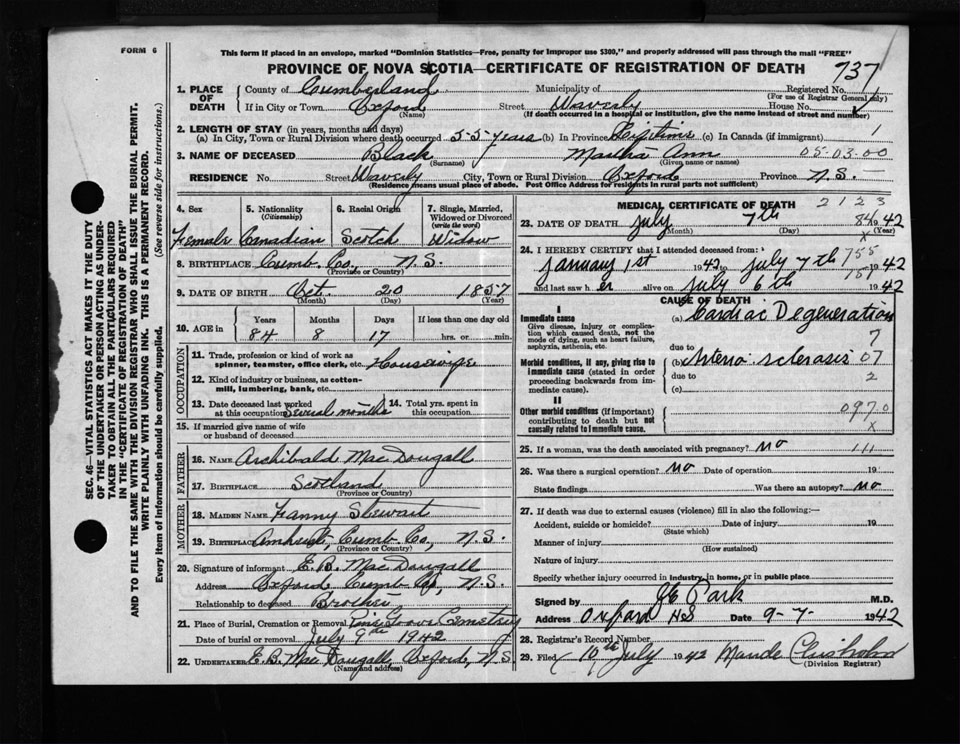 FORM 6
This form if placed in an envelope, marked "Dominion Statistics—Free, penalty for improper use $300," and properly addressed will pass through the mail "FREE"
PROVINCE OF NOVA SCOTIA—CERTIFICATE OF REGISTRATION OF DEATH
737
1. PLACE OF DEATH
County of Cumberland Municipality of Registered No.
(For use of Registrar General only)
If in City or Town Oxford Street Waverly House No.
(Name) (If death occurred in a hospital or institution, give the name instead of street and number)
2. LENGTH OF STAY (in years, months and days)
(a) In City, Town or Rural Division where death occurred 55 years (b) In Province Lifetime (c) In Canada (if immigrant) 1
3. NAME OF DECEASED Black Martha Ann 05-03-00
(Surname) (Given name or names)
RESIDENCE No. Street Waverly City, Town or Rural Division Oxford Province N.S.
(Residence means usual place of abode. Post Office Address for residents in rural parts not sufficient)
4. Sex
Female
5. Nationality
(Citizenship)
Canadian
6. Racial Origin
Scotch
7. Single, Married, Widowed or Divorced
(write the word)
Widow
8. BIRTHPLACE Cumb. Co., N.S.
(Province or Country)
9. DATE OF BIRTH Oct. 20 1857
(Month) (Day) (Year)
10. AGE in
Years Months Days If less than one day old
84 8 17 hrs. or min.
OCCUPATION
11. Trade, profession or kind of work as spinner, teamster, office clerk, etc. Housewife
12. Kind of industry or business, as cotton-mill, lumbering, bank, etc.
13. Date deceased last worked at this occupation Several months
14. Total yrs. spent in this occupation
15. If married give name of wife or husband of deceased
FATHER
16. Name Archibald MacDougall
17. Birthplace Scotland
(Province or Country)
MOTHER
18. Maiden Name Fanny Stewart
19. Birthplace Amherst, Cumb. Co., N.S.
(Province or Country)
20. Signature of informant E.B. MacDougall
Address Oxford Cumb Co, N.S.
Relationship to deceased Brother
21. Place of Burial, Cremation or Removal Pine Grove Cemetery
Date of burial or removal July 9th 1942
22. Undertaker E.B. MacDougall, Oxford, N.S.
(Name and address)
MEDICAL CERTIFICATE OF DEATH 2123
23. DATE OF DEATH July 7th 84 1942
(Month) (Day) (Year)
24. I HEREBY CERTIFY that I attended deceased from:
January 1st 1942 to July 7th 1942
and last saw her alive on July 6th 1942
CAUSE OF DEATH
I
Immediate cause
Give disease, injury or complication which caused death, not the mode of dying, such as heart failure, asphyxia, asthenia, etc.
(a) Cardiac Degeneration
due to 7
Morbid conditions, if any, giving rise to immediate cause (stated in order proceeding backwards from immediate cause).
(b) Arterio-sclerosis 07
due to 2
(c)
II
Other morbid conditions (if important) contributing to death but not causally related to immediate cause.
0970
x
25. If a woman, was the death associated with pregnancy? No
26. Was there a surgical operation? No Date of operation 19
State findings Was there an autopsy? No
27. If death was due to external causes (violence) fill in also the following:—
Accident, suicide or homicide? Date of injury 19
(State which)
Manner of injury
(How sustained)
Nature of injury
Specify whether injury occurred in industry, in home, or in public place
Signed by Park M.D.
Address Oxford NS Date 9-7- 1942
28. Registrar's Record Number
29. Filed 10th July 1942 Maude Chisholm
(Division Registrar)
SEC. 46—VITAL STATISTICS ACT MAKES IT THE DUTY
OF THE UNDERTAKER OR PERSON ACTING AS UNDERTAKER TO OBTAIN ALL THE PARTICULARS REQUIRED
IN THE "CERTIFICATE OF REGISTRATION OF DEATH"
AND TO FILE THE SAME WITH THE DIVISION REGISTRAR WHO SHALL ISSUE THE BURIAL PERMIT.
WRITE PLAINLY WITH UNFADING INK. THIS IS A PERMANENT RECORD.
Every item of information should be carefully supplied. (See reverse side for instructions.)